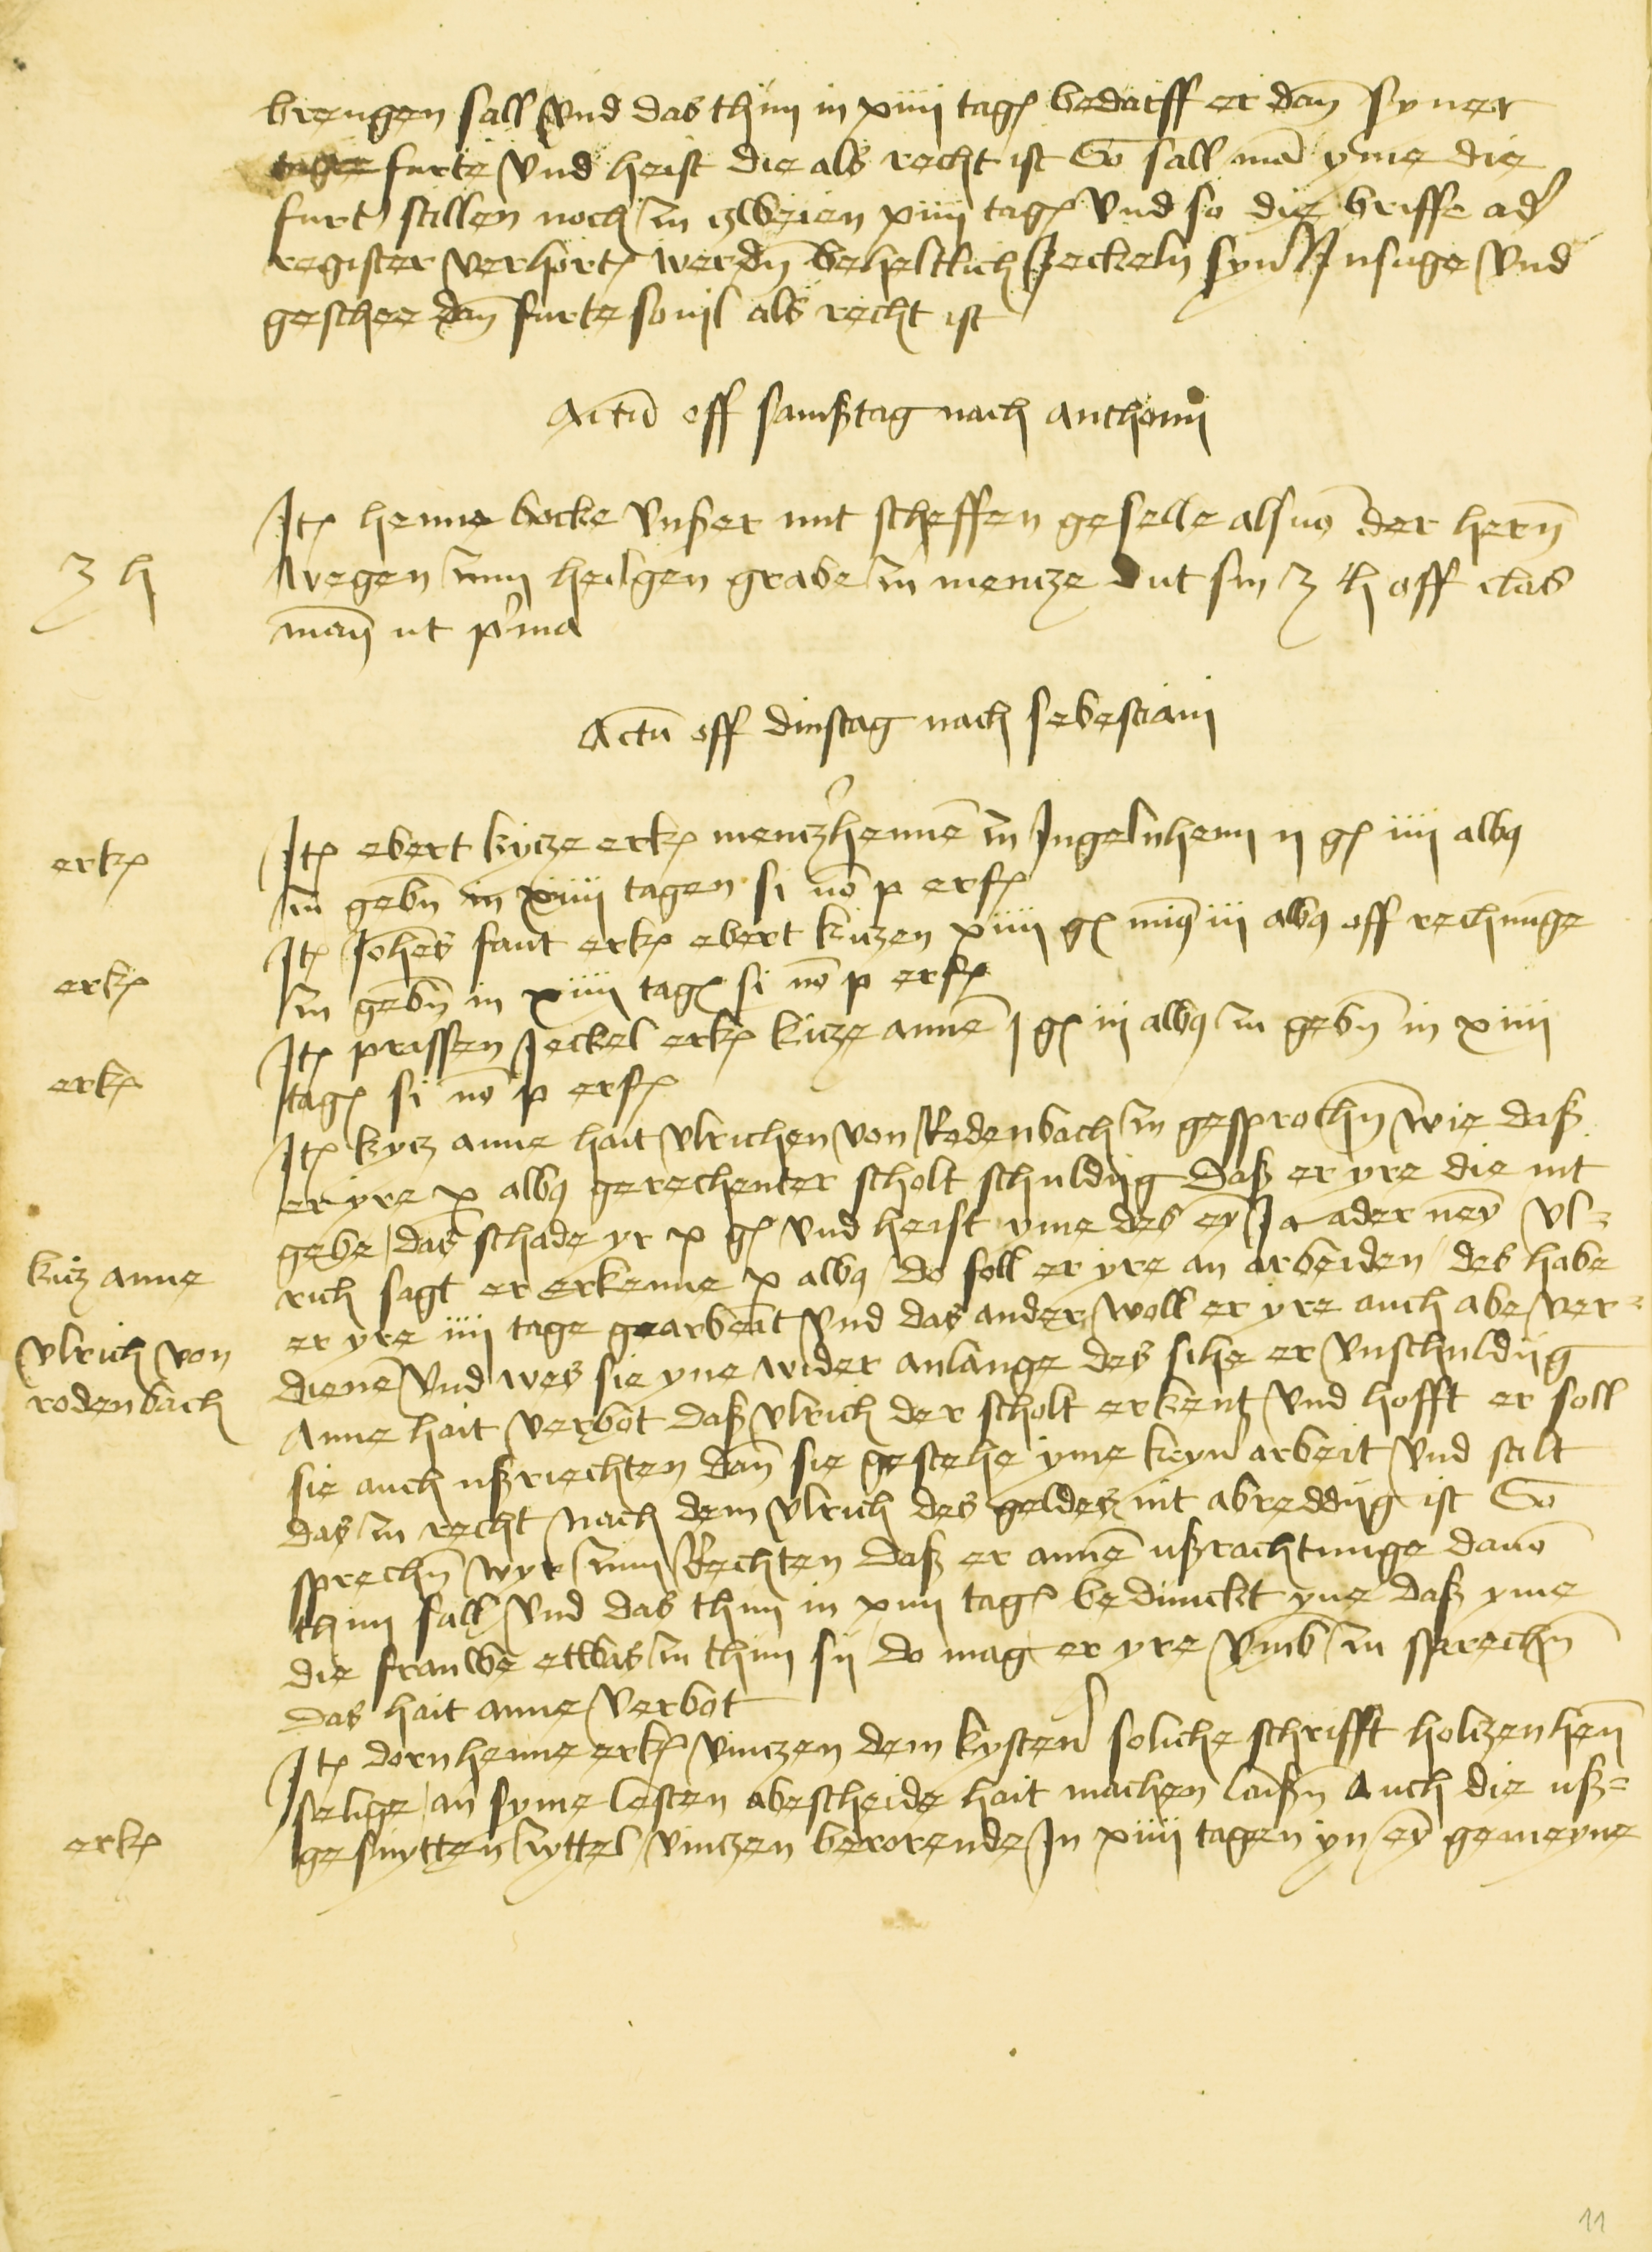 brengen sall vnd das thun in xiiii tag bedarff er dan syner
furte vnd heist die als recht ist So sall man yme die
furt stillen noch zu zweien xiiii tag vnd so die briffe ader
register verhort werdn beheltlich Jeckeln syner Insage vnd
geschee dan furte souil als recht ist
Actum off samßtag nach anthonii
Itm henne bocke vnßer mit scheffen geselle als von der hern
3 h
wegen zum heilgen grabe zu mencze dut sin 3 h off clas
man ut prima
Actum off dinstag nach sebestiani
erk
Itm ebert kicze erk menczhenne zu Ingelnheim ii g iiii albq
zu gebn in xiiii tagen si no p erf
erk
Itm Johes faut erk ebert kiczen xiiii g minq iii albq off rechnunge
zu gebn in xiiii tag si no p erf
erk
Itm prissen Jeckel erk kicze annen i g iii albq zu gebn in xiiii
tag si no p erf
Itm kycz anne hait vlrichen von Rodenbach zu gesprochn wie daß
er yre x albq gerechenter scholt schuldig daß er yre die nit
gebe das schade yr x g vnd heist yme des ey Ja ader ney vl=
kicz anne
rich sagt er erkenne x albq do soll er yre an arbeiden des habe
er yre iiii tage gearbeit vnd das ander woll er yre auch abe ver=
vlrich von
rodenbach
diene vnd wes sie yne wider anlange des sihe er vnschuldig
Anne hait verbot daß vlrich der scholt erkent vnd hofft er soll
sie auch ußriechten dan sie gestehe yme keyner arbeit vnd stalt
das zu recht Nach dem vlrich des geldes nit abreddig ist So
sprechn wyr zum Rechten daß er anne ußrachtunge dauo
thun sall vnd das thun in xiiii tag beduncket yne daß yme
die frauwe ettwas zu thun sij do mag er yre vmb zu sprechn
das hait anne verbot
Itm dornhenne erk vinczen dem kystener soliche schrifft holczenhen
selige an syme lesten abescheide hait machen laißn Auch die uß=
erk
gesnytten zyttel vinczen berorende In xiiii tagen yn ey gemeyne
11